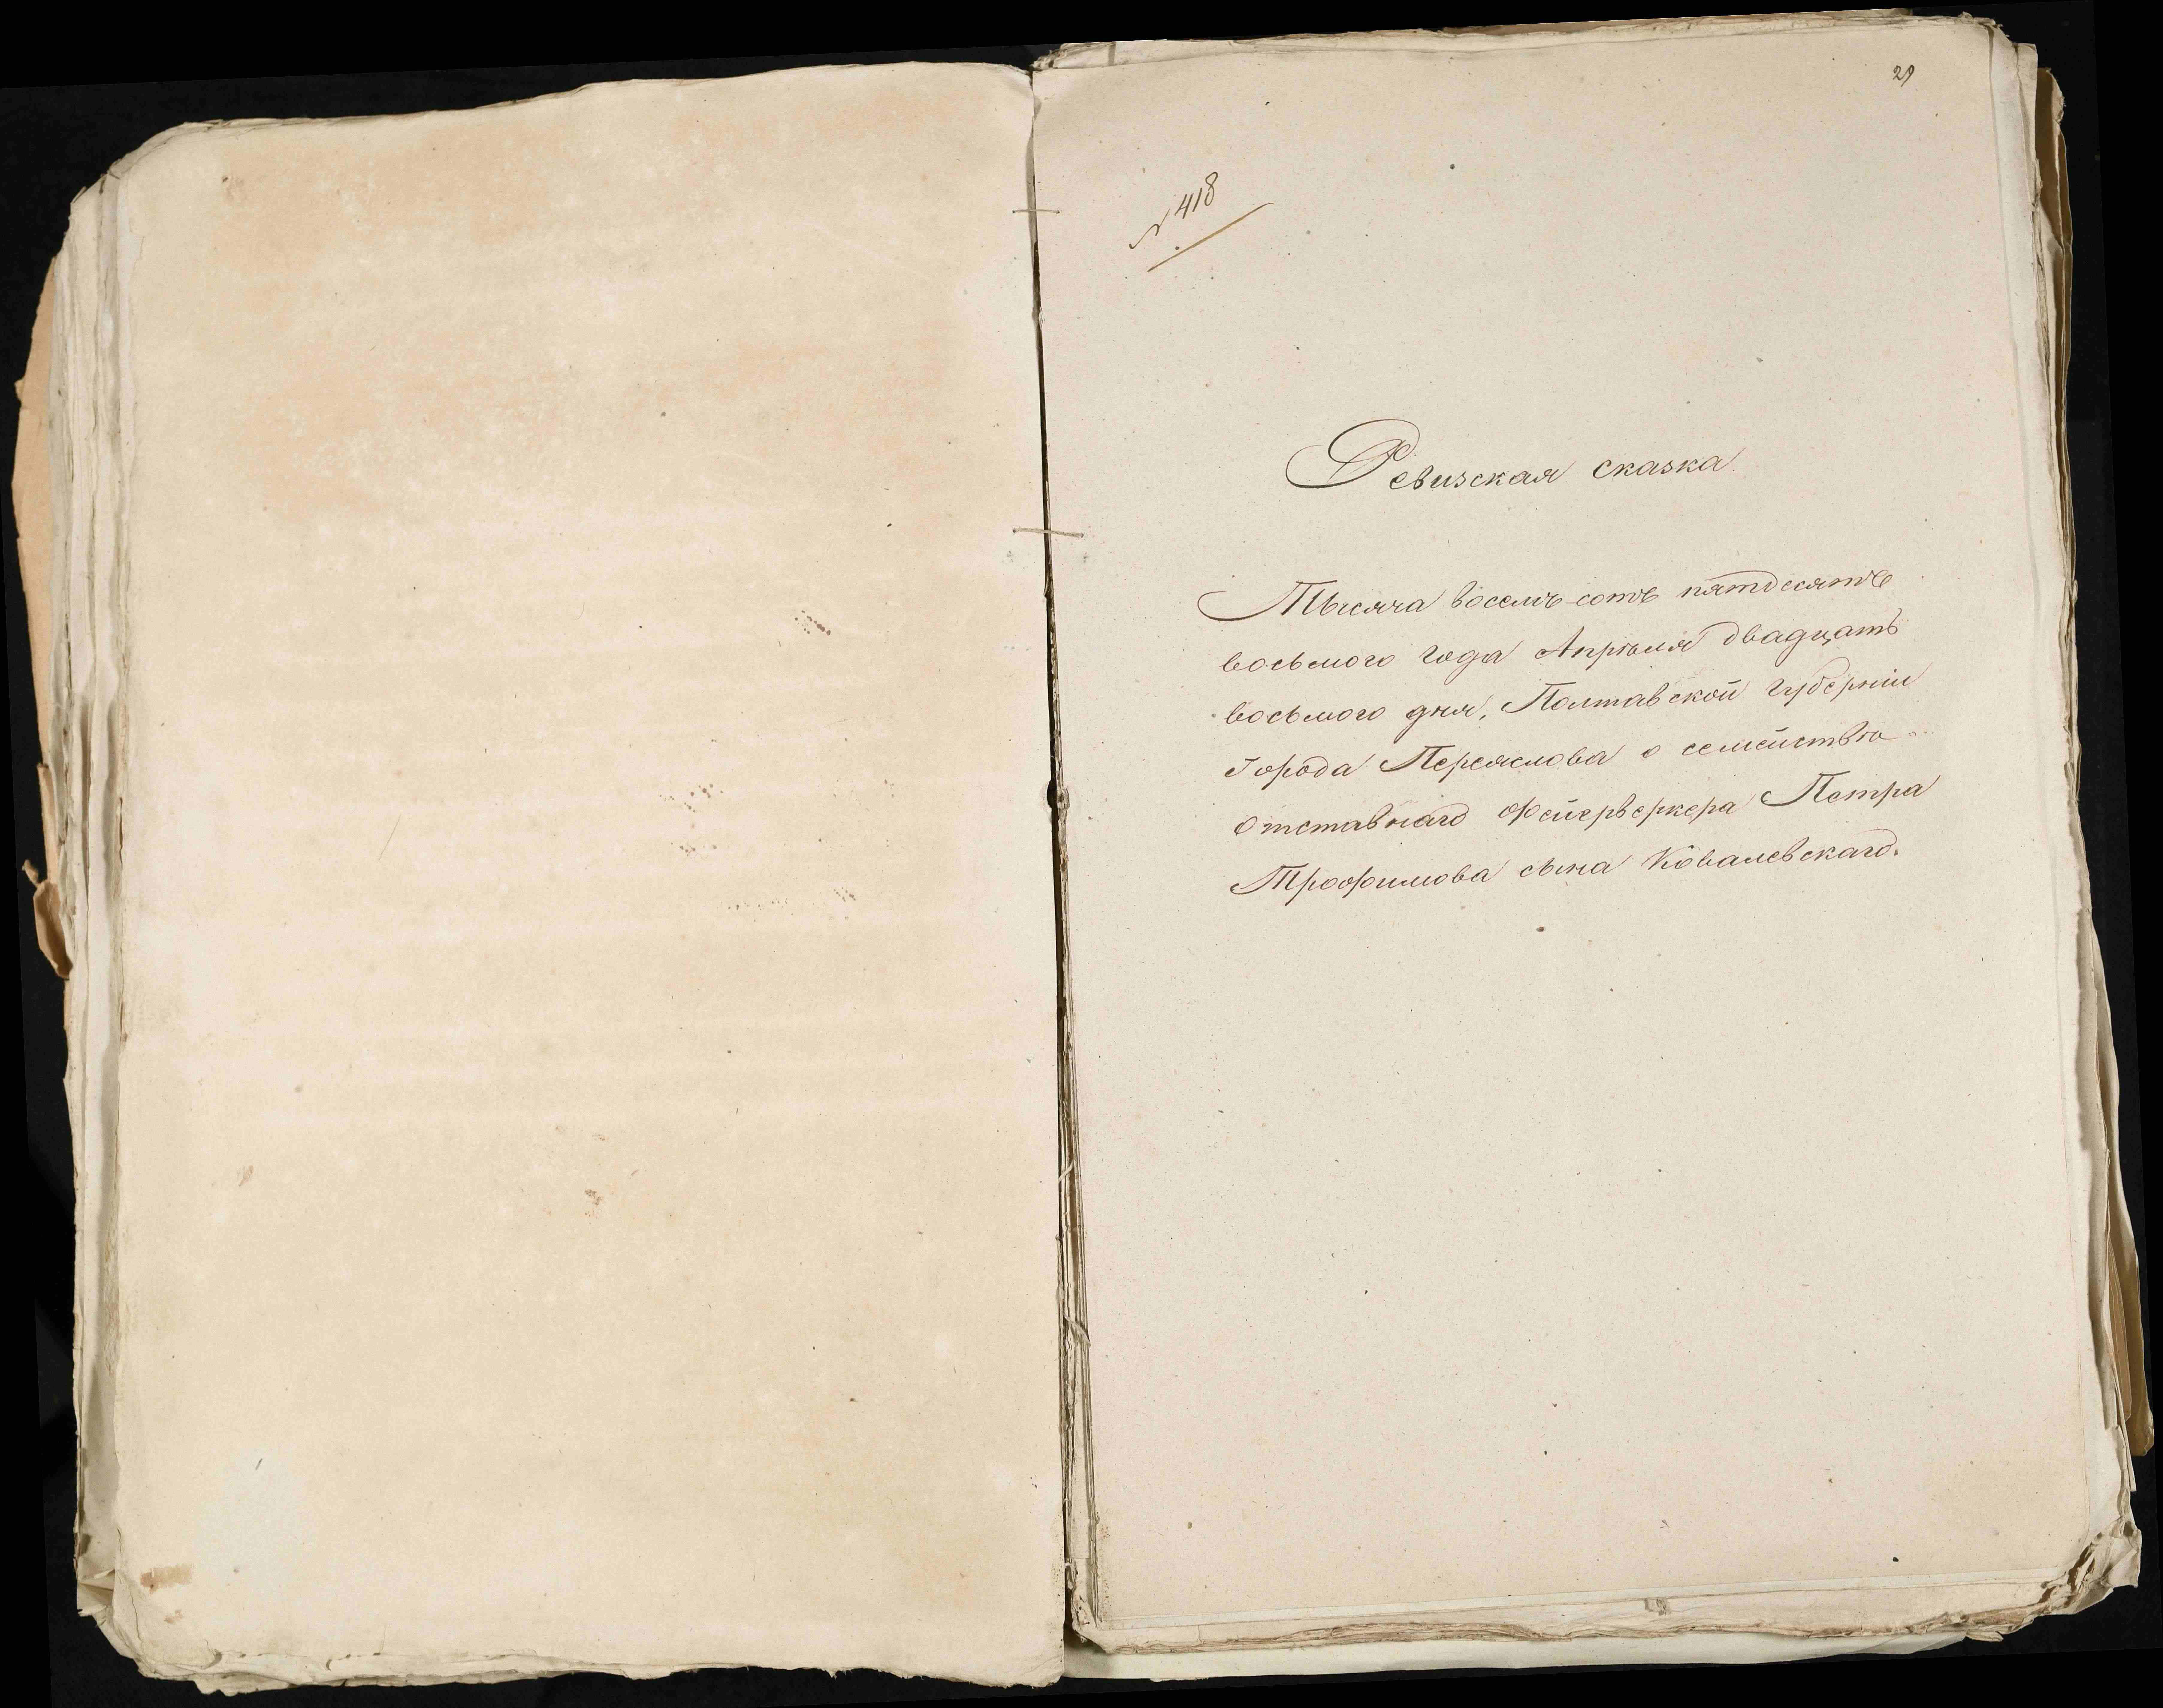 29
№ 418
Ревизская сказка
Тысяча восемь-сотъ пятдесятъ
восьмого года Апрѣля двадцать
восьмого дня, Полтавской губерніи
города Переяслова о семействѣ
отставнаго Фейерверкера Петра
Трофимова сына Ковалевскаго.